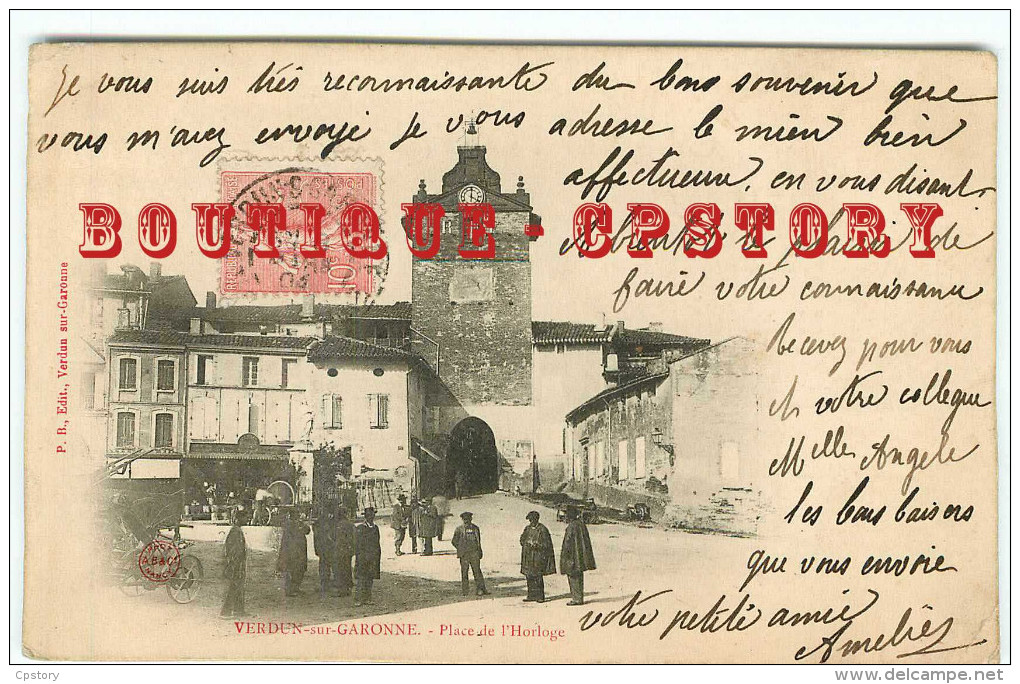 Je vous suis très reconnaissante du bons souvenir que
vous m'avez envoyé Je vous adresse le mien bien
affectueux, en vous disant
BOUTIQUE - CPSTORY
A bientôt le plaisir de
faire votre connaissance
Recevez pour vous
et votre collegue
Melles Angele
les bons baisers
que vous envoie
votre petite amie
Amelie
REPUBLIQUE
POSTES
10
P. B., Edit., Verdun sur-Garonne
AB&C
NANCY
VERDUN-sur-GARONNE. - Place de l'Horloge
Cpstory
www.delcampe.net